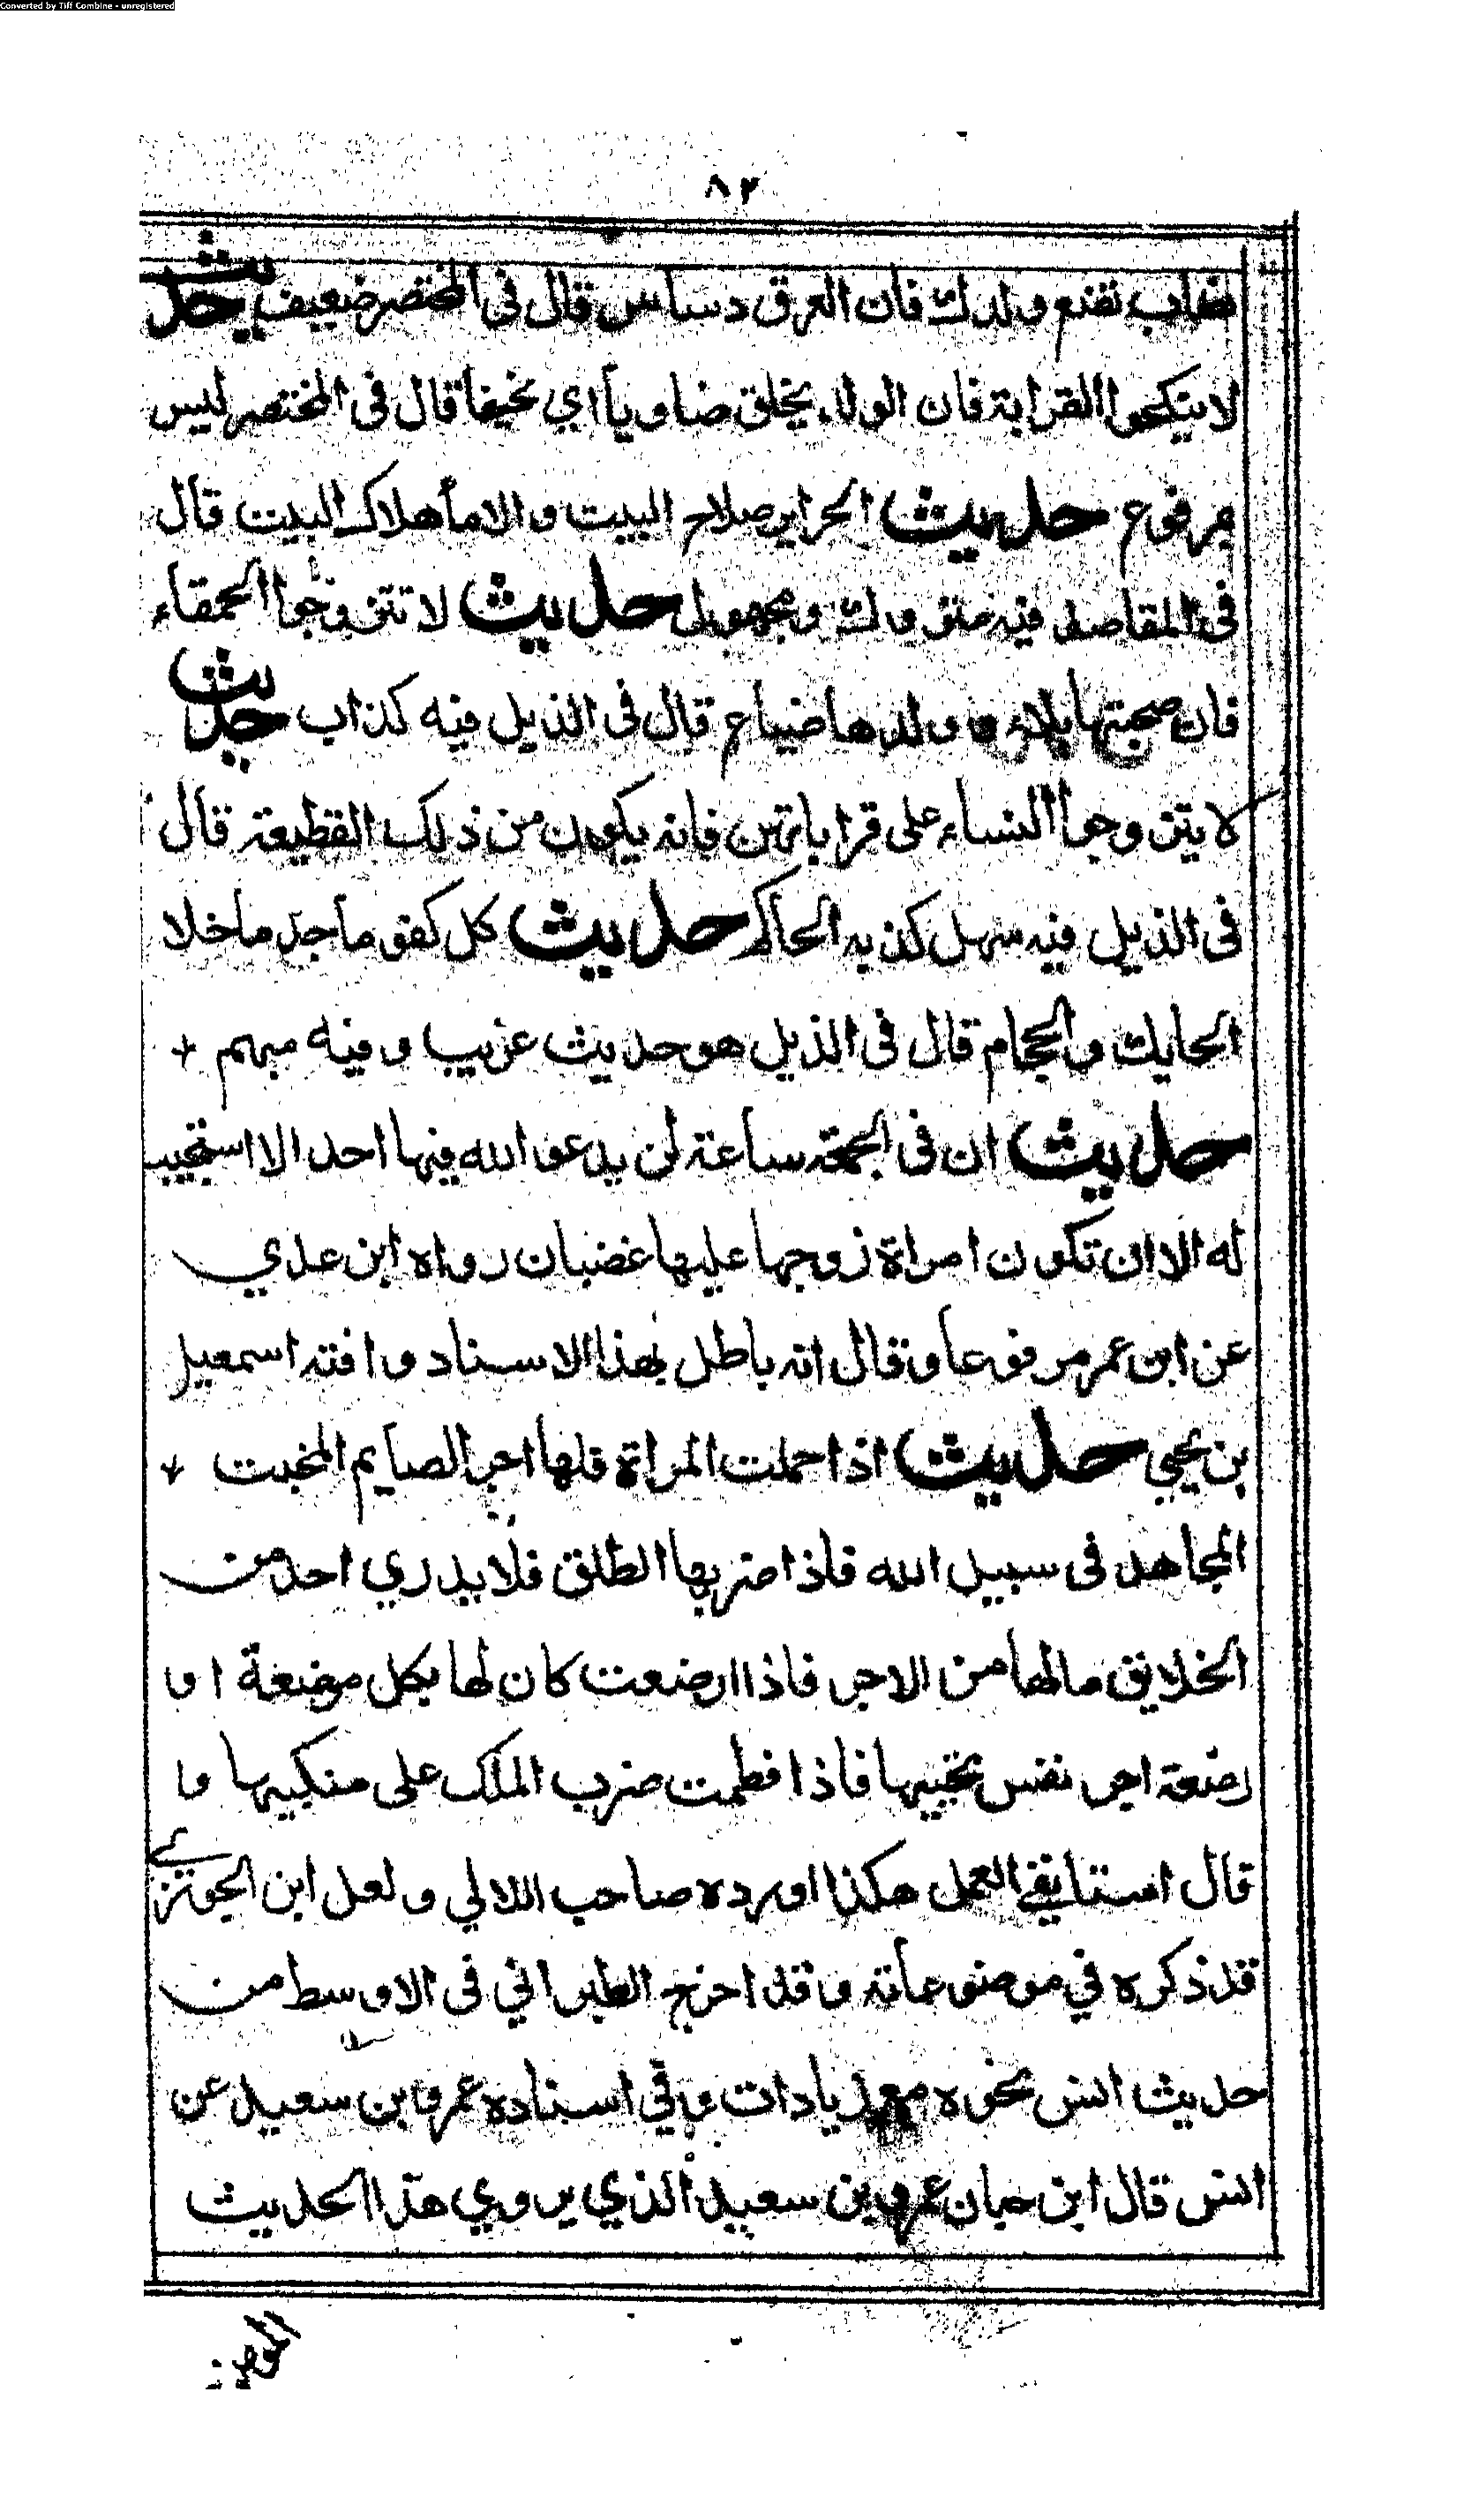 Converted by Tiff Combine - unregistered
٨٢
نصاب تضع ولدك فان العرق دساس قال فى المختصر ضعيف حديث
لا ينكحوا القرابة فان الولد يخلق ضاويا اي نحيفا قال فى المختصر ليس
مرفوع حديث الحراير صلاح البيت والاما هلاك البيت قال
فى المقاصد فيه متروك ومجهول حديث لا تتزوجوا الحمقاء
فان صحبتها بلاء وولدها ضياع قال فى الذيل فيه كذاب حديث
لا يتزوجوا النساء على قراباتهن فانه يكون من ذلك القطيعة قال
فى الذيل فيه سهل كذبه الحاكم حديث كل كفو ما جل ما خلا
الحايك والحجام قال فى الذيل هو حديث غريب وفيه مبهم
حديث ان فى الجمعة ساعة لن يدعو الله فيها احد الا استجيب
له الا ان تكون امراة زوجها عليها غضبان رواه ابن عدي
عن ابن عمر مرفوعا وقال انه باطل بهذا الاسناد وافته اسمعيل
بن يحيي حديث اذا حملت المراة فلها اجر الصايم المخبت
المجاهد فى سبيل الله فاذا ضربها الطلق فلا يدري احد من
الخلايق ما لها من الاجر فاذا ارضعت كان لها بكل مرضعة او
رضعة اجر نفس تحييها فاذا فطمت ضرب الملك على منكبيها و
قال استانفي العمل هكذا اورده صاحب اللالي ولعل ابن الجوزي
قد ذكره في موضوعاته وقد اخرج الطبراني فى الاوسط من
حديث انس نحوه مع زيادات وفي اسناده عمرو بن سعيد عن
انس قال ابن حبان عمرو بن سعيد الذي يروي هذا الحديث